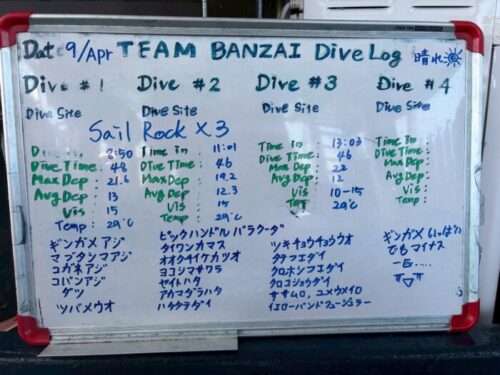 Date 9/Apr TEAM BANZAI Dive Log 晴れ
Dive #1
Dive Site
Dive #2
Dive Site
Dive #3
Dive Site
Dive #4
Dive Site
Sail Rock X3
Time in : 8:50
Dive Time : 48
Max Dep : 21.6
Avg Dep : 13
Vis : 15
Temp : 29℃
ギンガメアジ
マブタシマアジ
コガネアジ
コバンアジ
ダツ
ツバメウオ
Time in : 11:01
Dive Time : 46
Max Dep : 19.2
Avg Dep : 12.3
Vis : 15
Temp : 29℃
ピックハンドルバラクーダ
タイワンカマス
オオクチイケカツオ
ヨコシマサワラ
セイトハタ
アカマダラハタ
ハタタテダイ
Time in : 13:03
Dive Time : 46
Max Dep : 22
Avg Dep : 12
Vis : 10-15
29℃
ツキチョウチョウウオ
タテフエダイ
クロホシフエダイ
クロコショウダイ
ササムロ、ユメウメイロ
イエローバンドフュージュラー
Time in :
Dive Time :
Max Dep :
Avg Dep :
Vis :
Temp :
ギンガメ いっぱい
でもマイナス